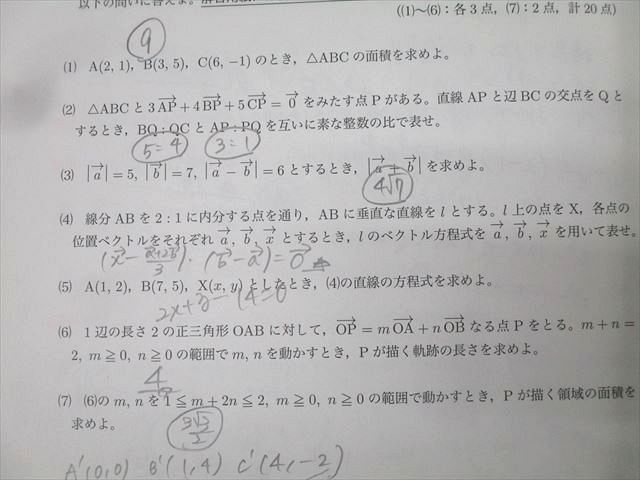 以下の問いに答えよ。
((1)〜(6)：各3点，(7)：2点，計20点)
9
(1) A(2, 1)，B(3, 5)，C(6, −1) のとき，△ABC の面積を求めよ。
(2) △ABC と 3AP→ + 4BP→ + 5CP→ = 0→ をみたす点 P がある。直線 AP と辺 BC の交点を Q と
するとき，BQ : QC と AP : PQ を互いに素な整数の比で表せ。
5:4 3:1
(3) |a→| = 5, |b→| = 7, |a→ − b→| = 6 とするとき，|a→ + b→| を求めよ。
4√7
(4) 線分 AB を 2 : 1 に内分する点を通り，AB に垂直な直線を l とする。l 上の点を X，各点の
位置ベクトルをそれぞれ a→, b→, x→ とするとき，l のベクトル方程式を a→, b→, x→ を用いて表せ。
(x→ − (a→+2b→)/3)・(b→ − a→) = 0→
(5) A(1, 2)，B(7, 5)，X(x, y) としたとき，(4)の直線の方程式を求めよ。
2x+y−14=0
(6) 1 辺の長さ 2 の正三角形 OAB に対して，OP→ = mOA→ + nOB→ なる点 P をとる。m + n =
2, m ≧ 0, n ≧ 0 の範囲で m, n を動かすとき，P が描く軌跡の長さを求めよ。
4
(7) (6)の m, n を 1 ≦ m + 2n ≦ 2, m ≧ 0, n ≧ 0 の範囲で動かすとき，P が描く領域の面積を
求めよ。
3√3/2
A'(0,0) B'(1,4) C'(4,−2)